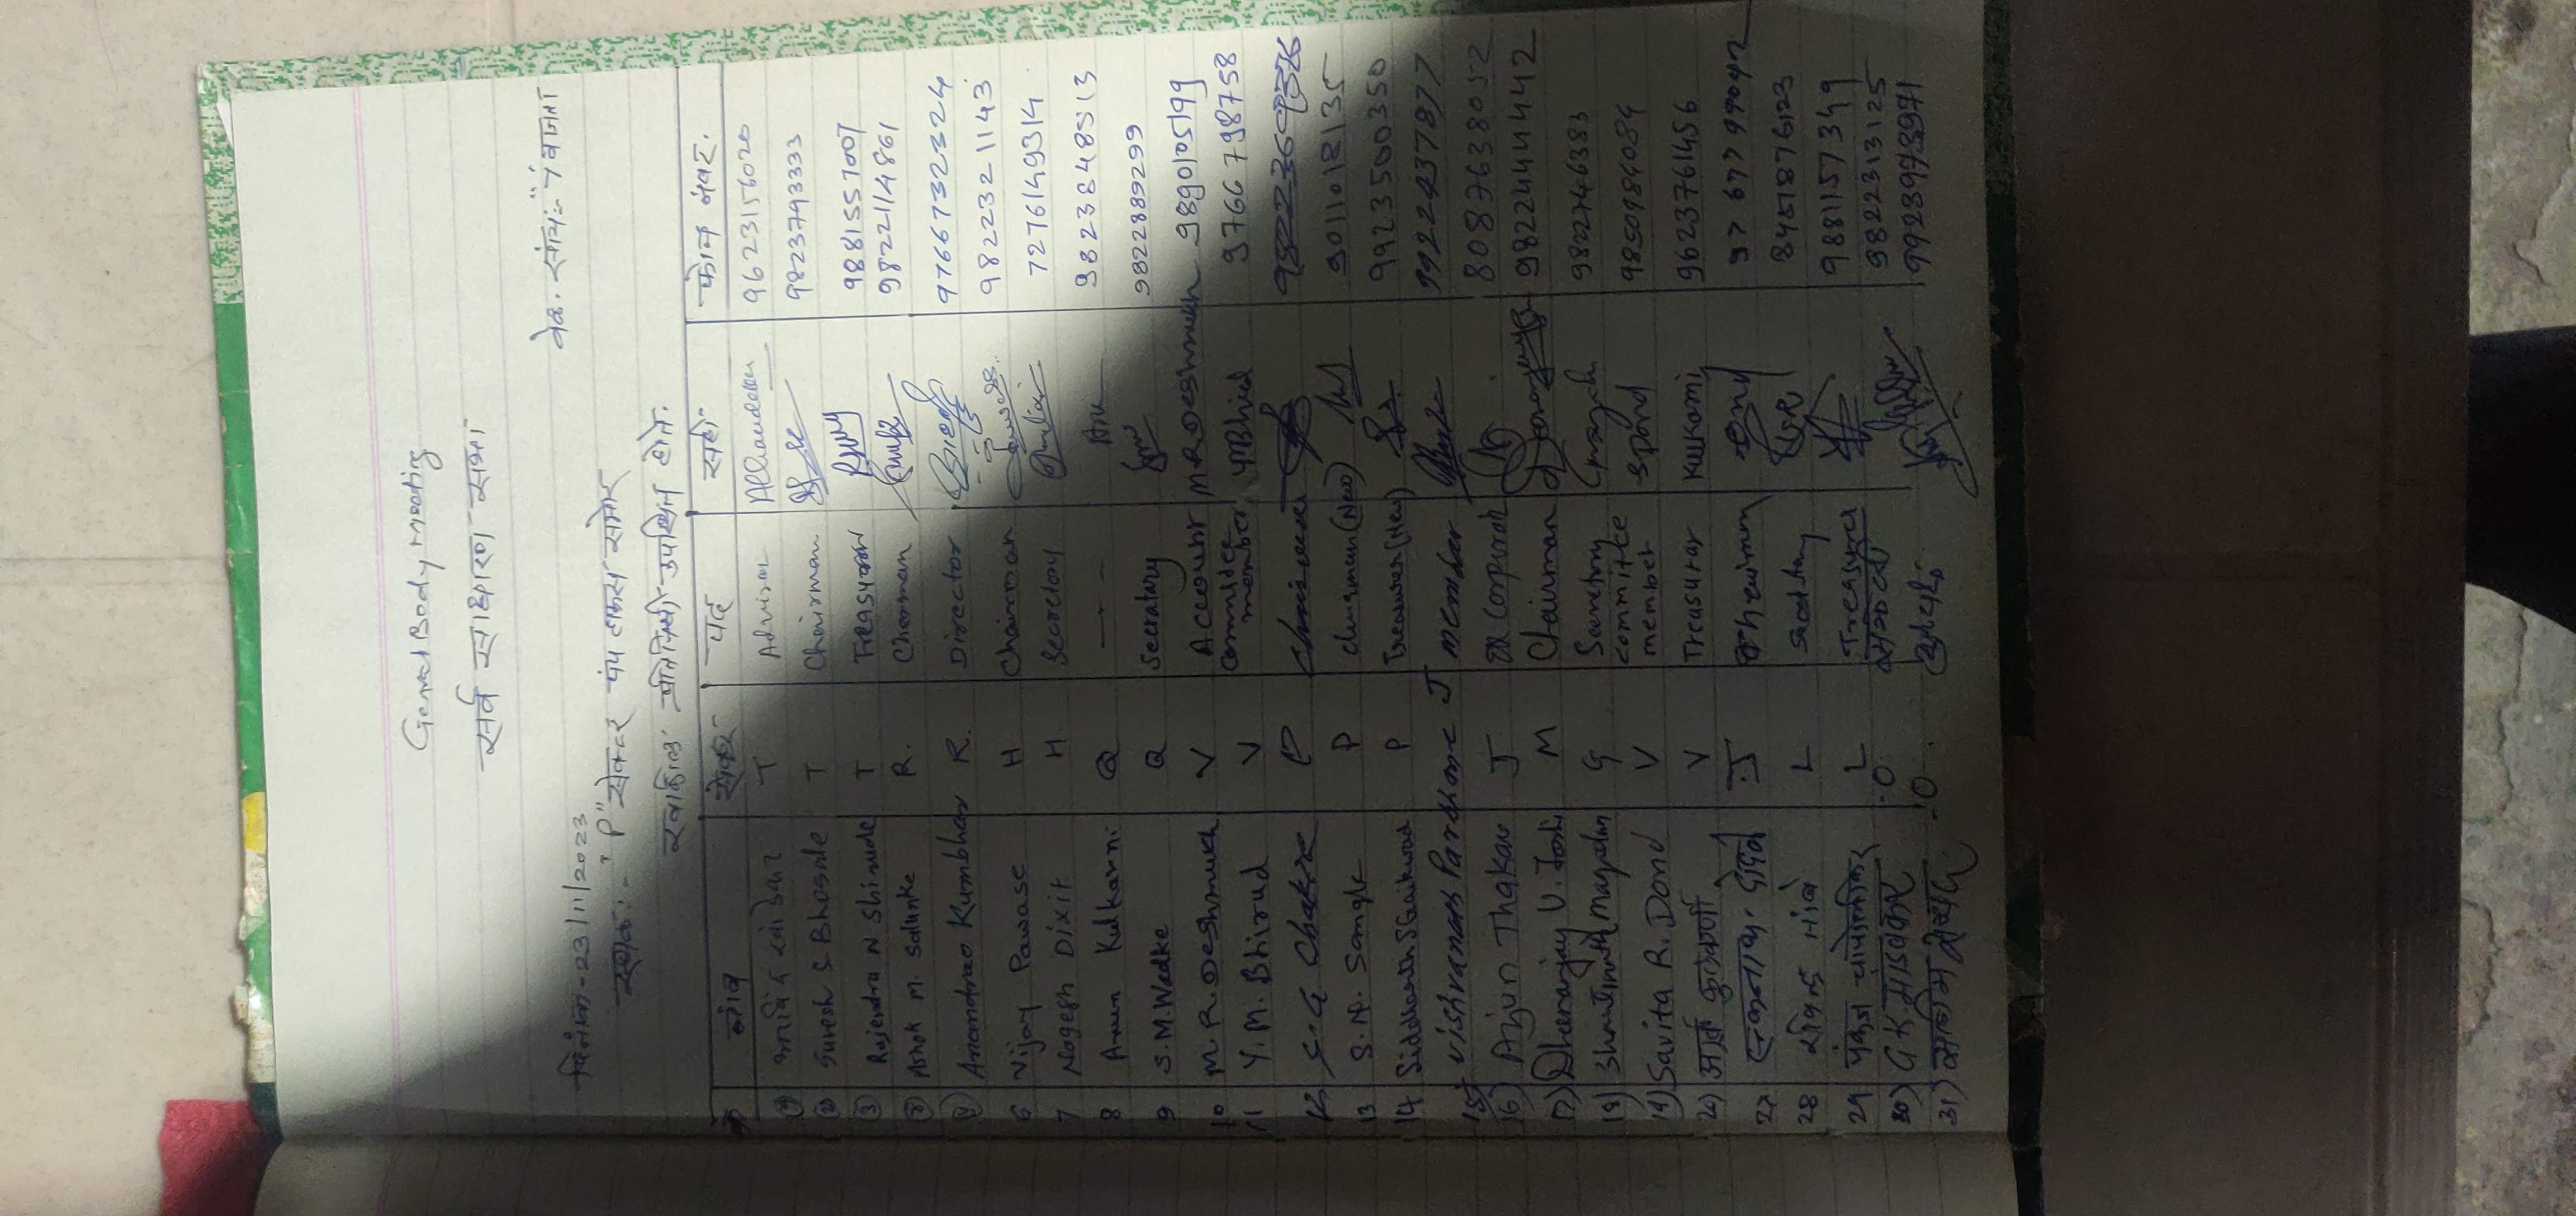 General Body Meeting
सर्व साधारण सभा
वेळ. सायं:- "7 वाजता
दिनांक-23/11/2023
स्थळ:- "P" सेक्टर पंप हाऊस समोर
खालील प्रतिनिधी उपस्थित होते.
नांव सेक्टर पद सही फोन नंबर.
T Advisor 9623156020
Suresh S Bhosale T Chairman 9823793333
3 Rajendra N Shirude T Treasurer 9881557007
Ashok M. Salunke R. Cherman 9822114861
Anandrao Kumbhar R. Director 9766732324
6 Vijay Pawase H Chairman 9822321143
7 Nagesh Dixit H. Secretory 7276149314
8 Arun Kulkarni Q — - 9823848513
9 S.M.Wadke Q Secratary 9822889299
10 M. R. Deshmukh V Account M R Deshmukh 9890105199
11 Y. M. Bhirud V committee member 9766798758
12 P
13 S. P. Sangle P chairman (New) 9011018135
14 Siddharth S Gaikwad P Treasurer (New) 9923500350
15) Vishvanath Parkhane J member 9922437877
16) Arjun Thakar J Ex Corporat 8087638052
17) Dheenanjay V. Joshi M Chairman 9822444442
18) G Secretory 9822746383
19) Savita R. Dond V committee member S Dond 9850984084
कुलकर्णी V Treasurar Kulkarni 9623761456
27 एकनाथ J
28 रविंद्र L 8451876123
29 पंकज L Treasurer 9881157349
30) G K मांडवकर O 9822313125
31) सलीम सय्यद O 9923973971